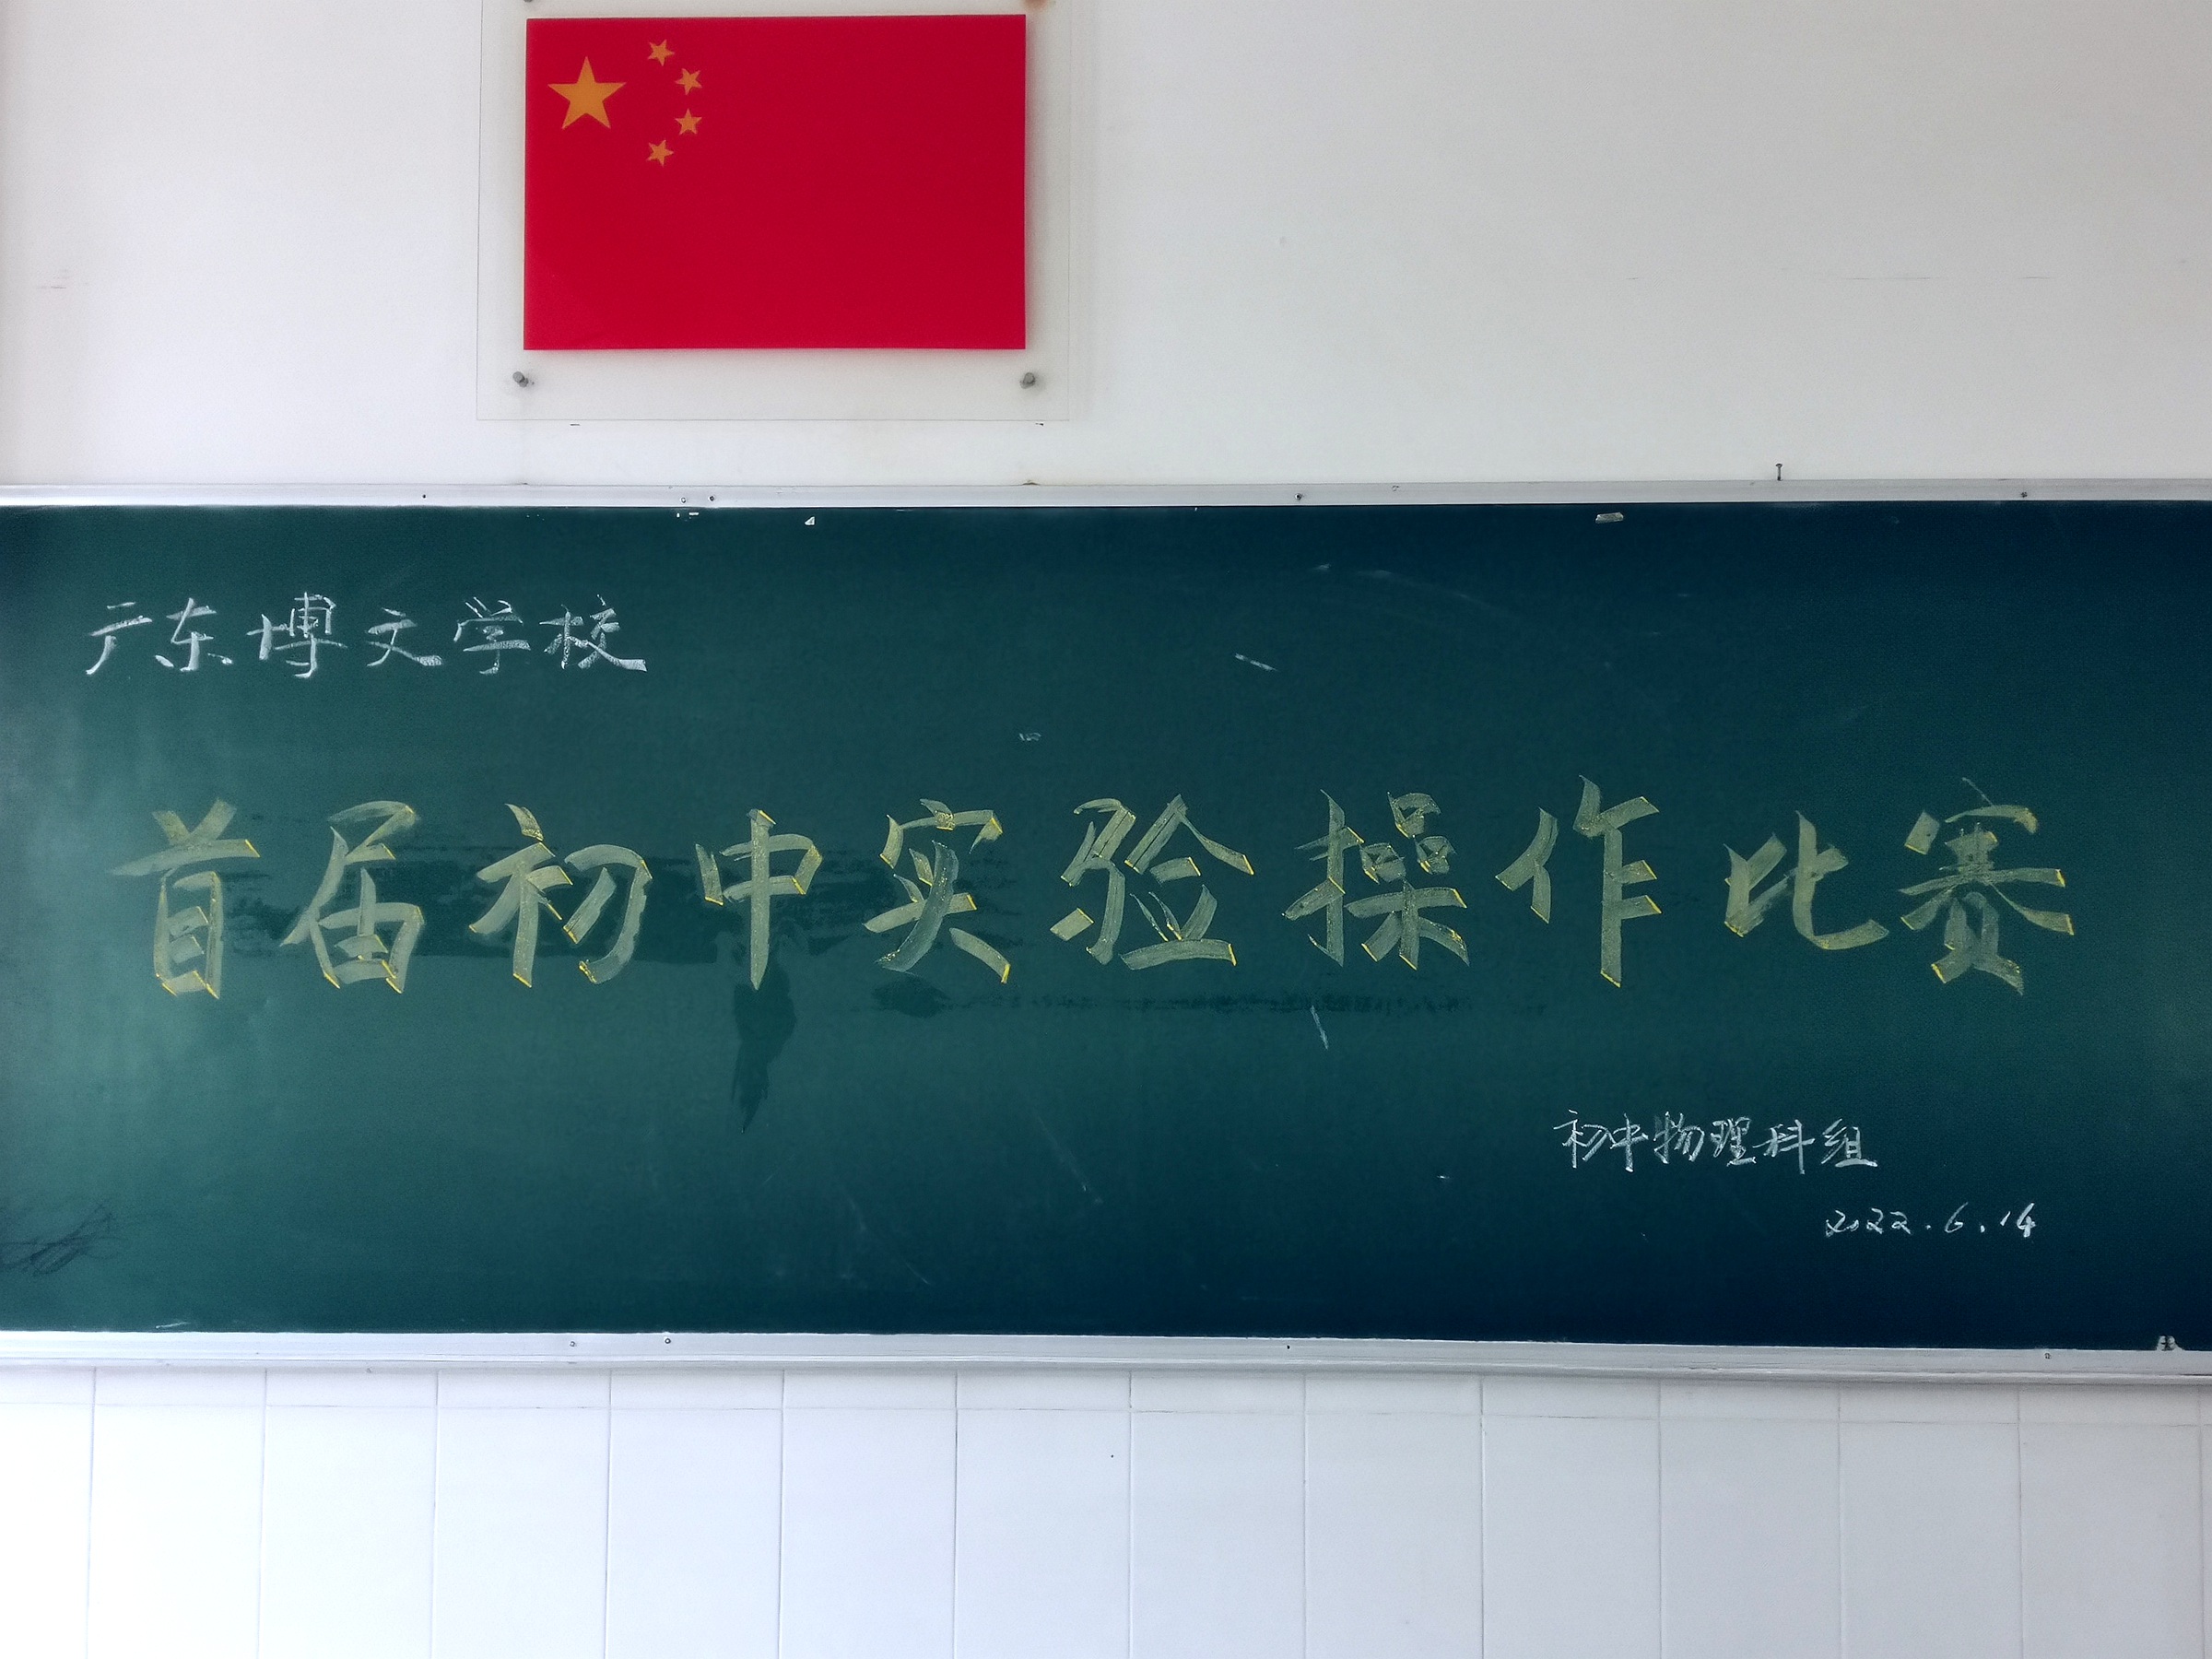 广东博文学校
首届初中实验操作比赛
初中物理科组
2022.6.14